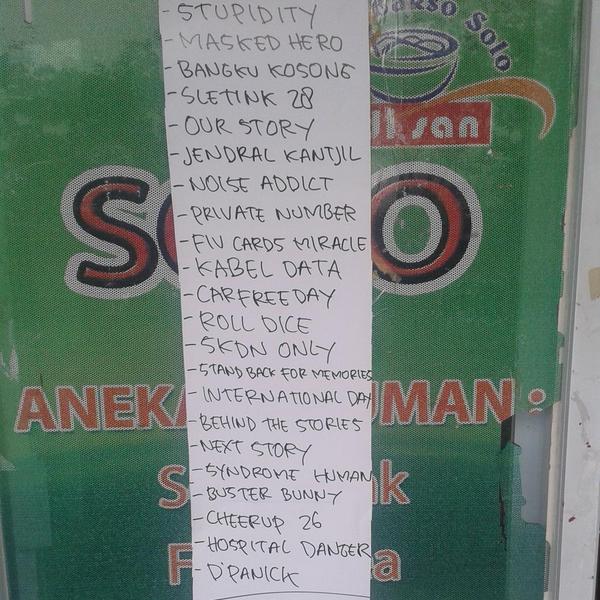 - STUPIDITY
- MASKED HERO
- BANGKU KOSONG
- SLETINK 28
- OUR STORY
- JENDRAL KANTJIL
- NOISE ADDICT
- PRIVATE NUMBER
- FIV CARDS MIRACLE
- KABEL DATA
- CARFREEDAY
- ROLL DICE
- SKDN ONLY
- STAND BACK FOR MEMORIES
- INTERNATIONAL DAY
- BEHIND THE STORIES
- NEXT STORY
- SYNDROME HUMAN
- BUSTER BUNNY
- CHEERUP 26
- HOSPITAL DANGER
- D'PANICK
Bakso Solo
san
S O
ANEKA UMAN :
S k
F a